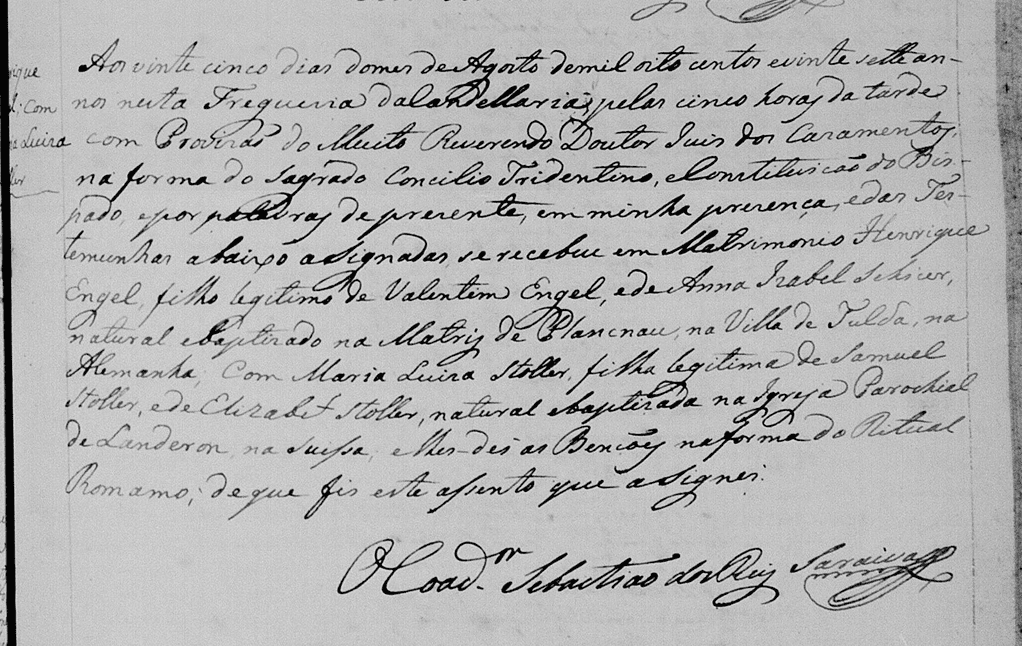 Aos vinte cinco dias do mes de Agosto de mil oito centos e vinte sette an-
nos nesta Freguesia da Candellaria, pelas cinco horas da tarde
com Provisaõ do Muito Reverendo Doutor Juis dos Cazamentos,
na forma do Sagrado Concilio Tridentino, e Constituicaõ do Bis-
pado, e por palavras de presente, em minha presença, e das Tes-
temunhas abaixo assignadas, se recebeu em Matrimonio Henrique
Engel, filho legitimo de Valentim Engel, e de Anna Izabel
natural e baptizado na Matriz de na Villa de Fulda, na
Alemanha; Com Maria Luiza Stoller, filha legitima de Samuel
Stoller, e de Elizabet Stoller, natural e baptizada na Igreja Parochial
de Landeron, na Suissa, e lhes dei as Bençoẽs na forma do Ritual
Romamo; de que fis este assento que assignei.
O Coad.or Sebastiaõ dos Reis Saraiva
rique
l; Com
Luiza
ller